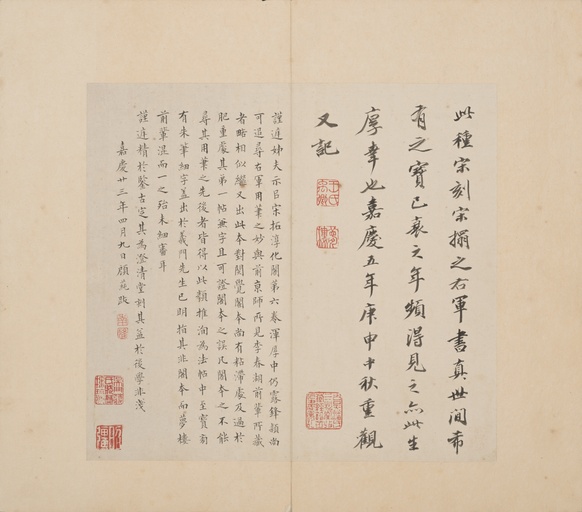 此種宋刻宋搨之右軍書真世间希
有之寶已衰之年頻得見之亦此生
厚幸也嘉慶五年庚申中秋重觀
又記
謹進姊夫示吕宋拓淳化閣第六卷渾厚中仍露鋒穎尚
可追尋右軍用筆之妙與前京師所見李春湖前輩所藏
者略相似繼又出此本對閱覺閣本尚有粘滯處及過於
肥重處其第一帖兼字且可證閣本之誤凡閣本之不能
尋其用筆之先後者皆得以此類推洵為法帖中至寶前
有朱筆細字盖出於義門先生已明指其非閣本而夢樓
前輩混而一之殆未細審耳
謹進精於鑒古定其為澄清堂刻其益於後學非淺
嘉慶廿三年四月九日顧蒓跋